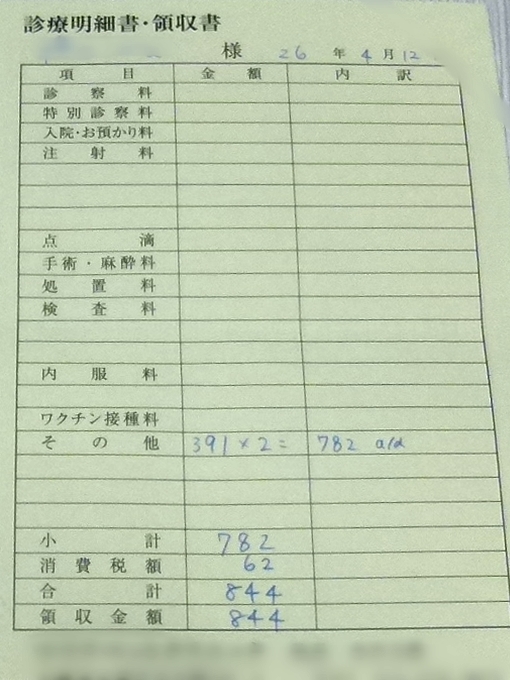 診療明細書・領収書
様 26年4月12
項目 金額 内訳
診察料
特別診察料
入院・お預かり料
注射料
点滴
手術・麻酔料
処置料
検査料
内服料
ワクチン接種料
その他 391×2= 782 a/d
小計 782
消費税額 62
合計 844
領収金額 844